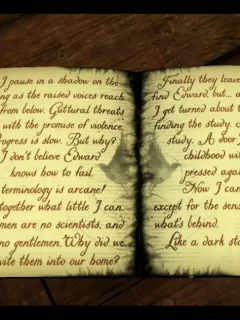 I pause in a shadow on the
ing as the raised voices reach
from below. Guttural threats
with the promise of violence.
rogress is slow. But why?
I don't believe Edward
knows how to fail.
terminology is arcane!
together what little I can.
men are no scientists, and
no gentlemen. Why did we
vite them into our home?
Finally they leave
find Edward, but... a
I get turned about
finding the study.
study. A door
childhood wi
pressed again
Now I can
except for the sens
what's behind.
Like a dark sto